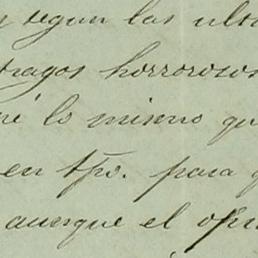 n segun las ulti
tragos horrorosos
ré lo mismo qu
en tpo. para q
aunque el ofi